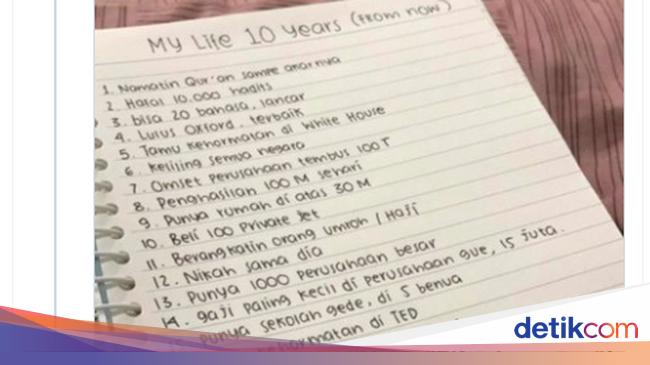 My Life 10 years (from now)
1. Namatin Qur'an sampe akarnya
2. Hafal 10.000 hadits
3. bisa 20 bahasa, lancar
4. Lulus Oxford, terbaik
5. Tamu kehormatan di White House
6. keliling semua negara
7. Omset perusahaan tembus 100 T
8. Penghasilan 100 M sehari
9. Punya rumah di atas 30 M
10. Beli 100 Private Jet
11. Berangkatin orang umroh / Haji
12. Nikah sama dia
13. Punya 1000 perusahaan besar
14. gaji paling kecil di perusahaan gue, 15 juta.
punya sekolah gede, di 5 benua
kehormatan di TED
detikcom